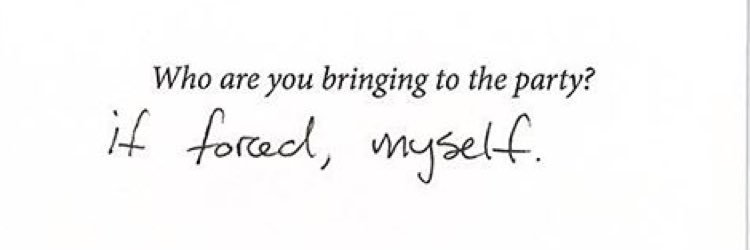 Who are you bringing to the party?
if forced, myself.